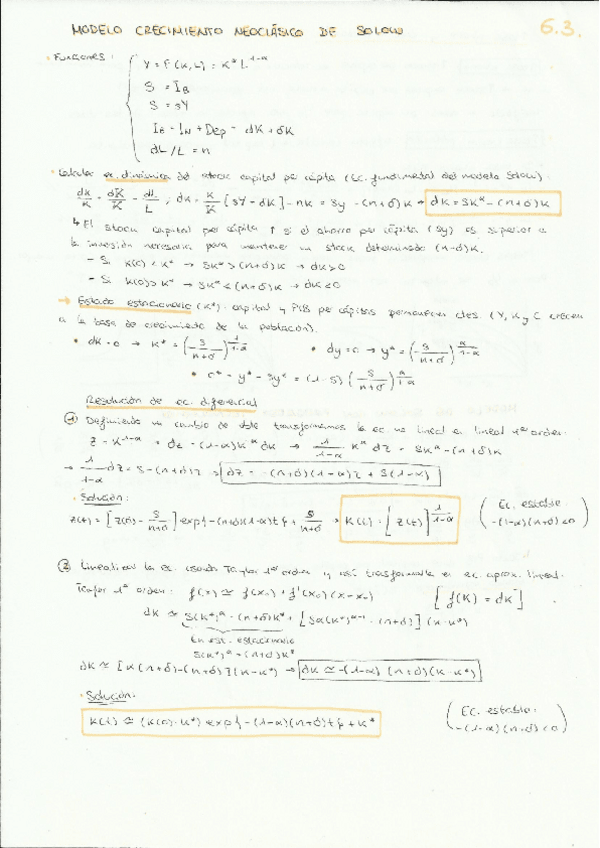 MODELO CRECIMIENTO NEOCLÁSICO DE SOLOW 6.3.
· Funciones: Y = F(K,L) = K^α L^1-α
S = I_B
S = sY
I_B = I_N + Dep = dK + δK
dL/L = n
· Calcular ec. dinámica del stock capital per cápita (Ec. fundamental del modelo Solow):
dk/k = dK/K - dL/L ; dk = k/K [sY - δK] - nk = sy - (n+δ)k → dk = sk^α - (n+δ)k
↳ El stock capital per cápita ↑ si el ahorro per cápita (sy) es superior a
la inversión necesaria para mantener un stock determinado (n+δ)k.
- Si k(0) < k* → sk^α > (n+δ)k → dk > 0
- Si k(0) > k* → sk^α < (n+δ)k → dk < 0
→ Estado estacionario (k*): capital y PIB per cápitas permanecen ctes. (Y, K y C crecen
a la tasa de crecimiento de la población).
• dk = 0 → k* = (s/(n+δ))^1/1-α • dy = 0 → y* = (s/(n+δ))^α/1-α
• c* = y* - sy* = (1-s) (s/(n+δ))^α/1-α
Resolución de ec. diferencial
① Definiendo un cambio de vble transformamos la ec. no lineal en lineal 1er orden.
z = k^1-α → dz = (1-α)k^-α dk → 1/1-α k^α dz = sk^α - (n+δ)k
→ 1/1-α dz = s - (n+δ)z → dz = -(n+δ)(1-α)z + s(1-α)
· Solución:
z(t) = [z(0) - s/(n+δ)] exp{-(n+δ)(1-α)t} + s/(n+δ) → k(t) = [z(t)]^1/1-α (Ec. estable: -(1-α)(n+δ)<0)
② Linealizar la ec. usando Taylor 1er orden y así transformarla en ec. aprox. lineal.
Taylor 1er orden: f(x) ≃ f(x₀) + f'(x₀)(x-x₀) [f(k) = dk]
dk ≃ s(k*)^α - (n+δ)k* + [sα(k*)^α-1 - (n+δ)](k-k*)
En est. estacionario
s(k*)^α = (n+δ)k*
dk ≃ [α(n+δ) - (n+δ)](k-k*) → dk ≃ -(1-α)(n+δ)(k-k*)
· Solución:
k(t) ≃ (k(0)-k*) exp{-(1-α)(n+δ)t} + k* (Ec. estable: -(1-α)(n+δ)<0)